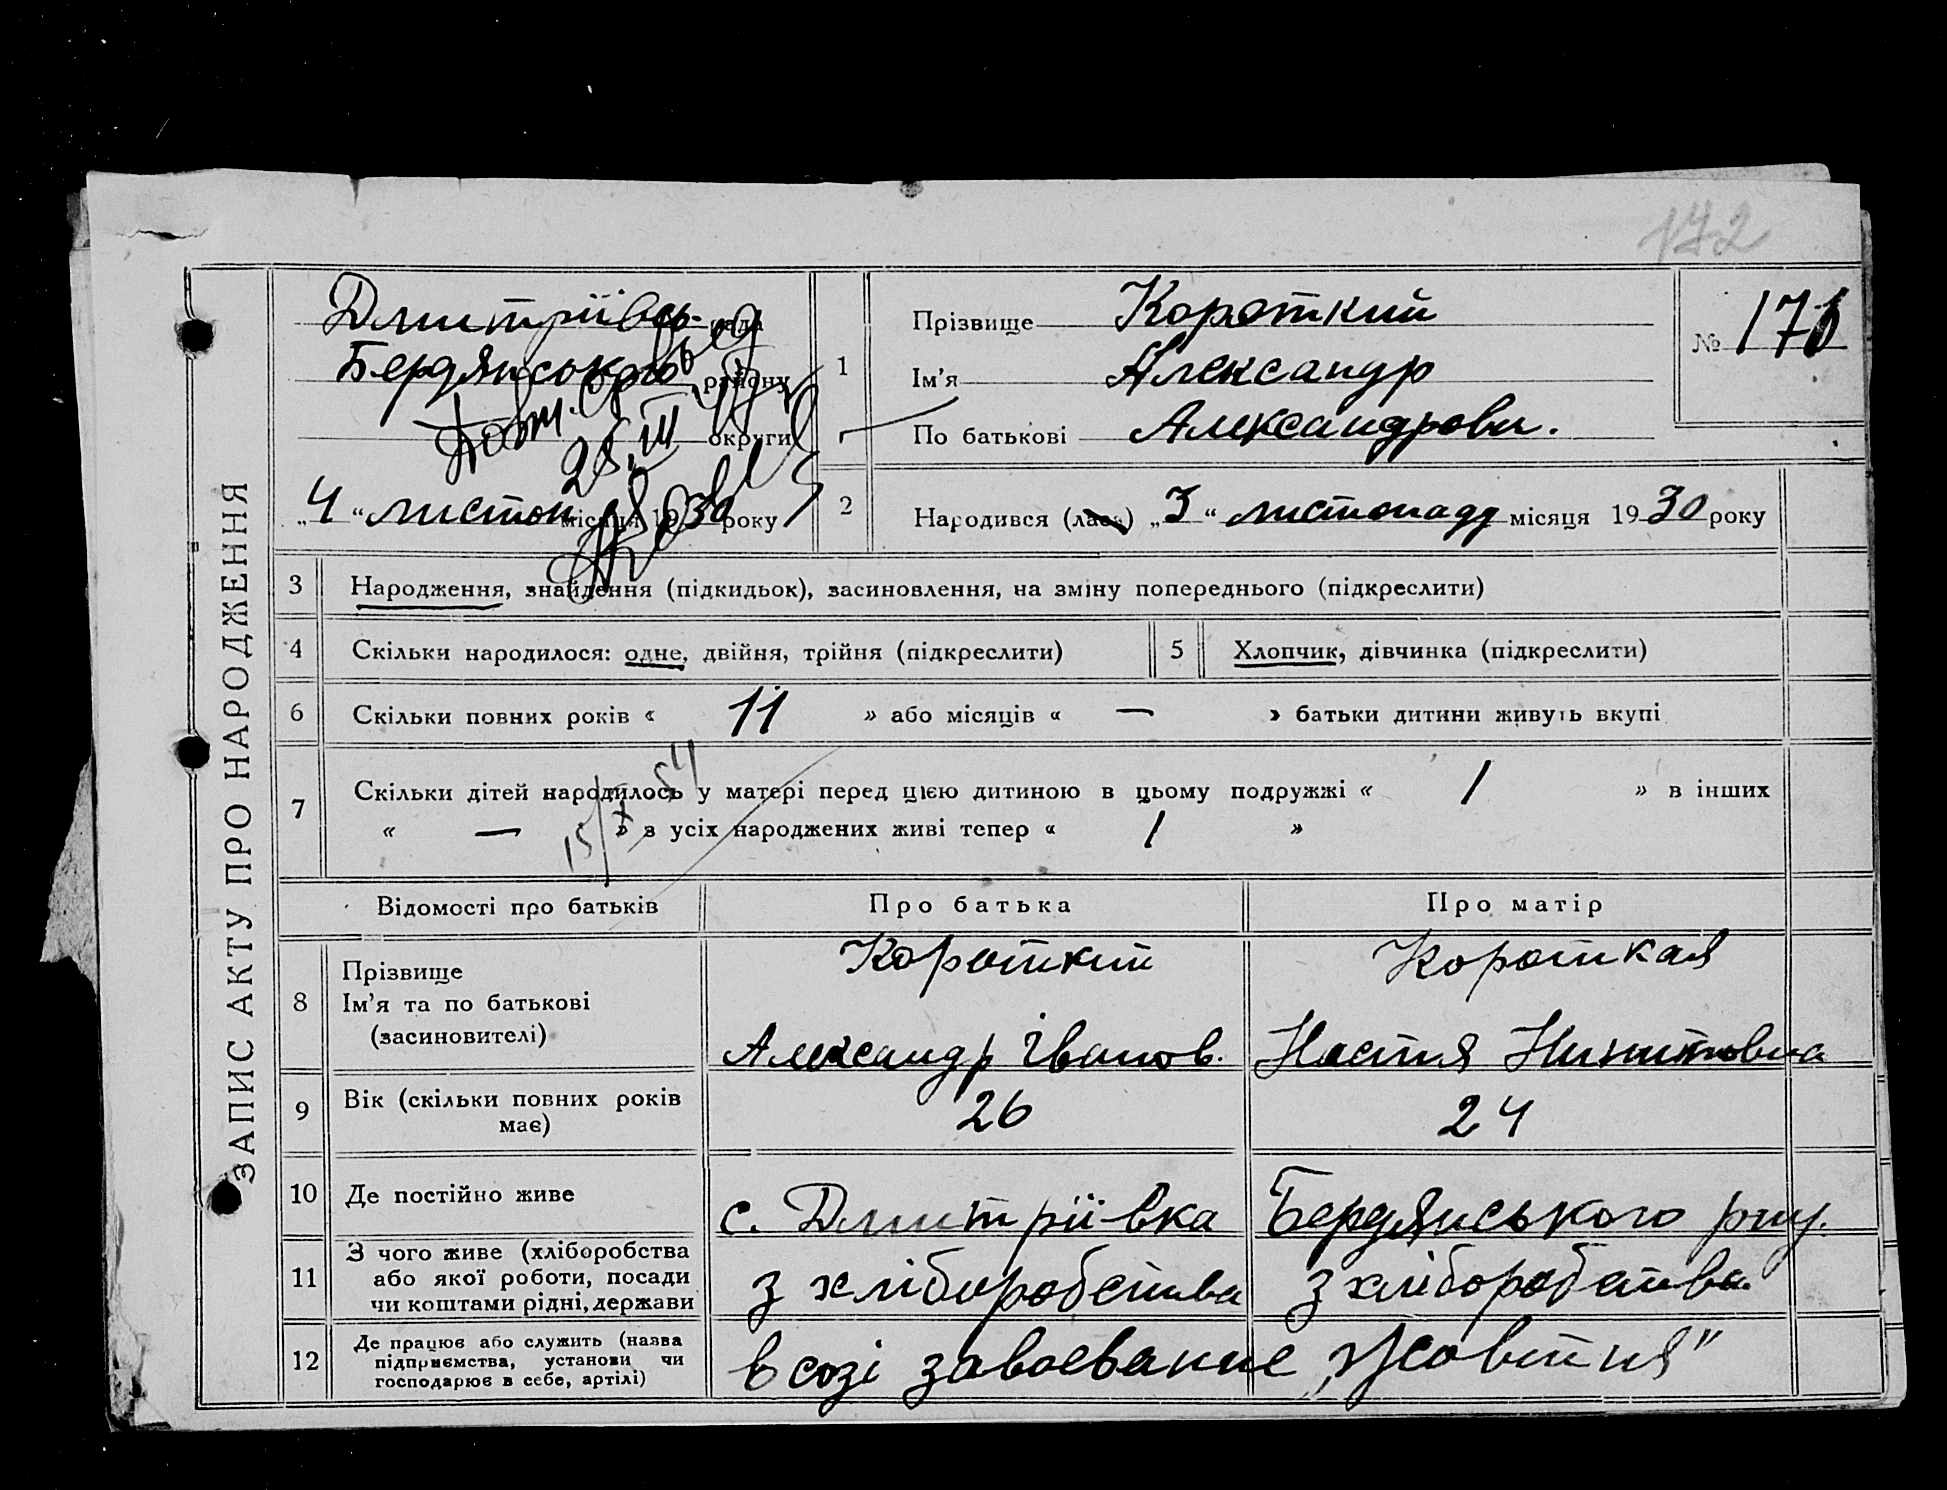 172
ЗАПИС АКТУ ПРО НАРОДЖЕННЯ
Дмитріївсь. рада
Бердянсько району
округи
„4“ листоп місяця 1930 року
Повт.
28.III
1 Прізвище Короткий
Ім'я Александр
По батькові Александрович.
№ 171
2 Народився (лась) „3“ листопаду місяця 1930 року
3 Народження, знайдення (підкидьок), засиновлення, на зміну попереднього (підкреслити)
4 Скільки народилося: одне, двійня, трійня (підкреслити) 5 Хлопчик, дівчинка (підкреслити)
6 Скільки повних років « 11 » або місяців « — » батьки дитини живуть вкупі
7 Скільки дітей народилось у матері перед цією дитиною в цьому подружжі « 1 » в інших
« — » з усіх народжених живі тепер « 1 »
15/X 54
Відомості про батьків Про батька Про матір
8 Прізвище Короткий Короткая
Ім'я та по батькові
(засиновителі) Александр Іванов. Настя Никитовна
9 Вік (скільки повних років
має) 26 24
10 Де постійно живе с. Дмитріївка Бердянського рну.
11 З чого живе (хліборобства
або якої роботи, посади
чи коштами рідні, держави з хліборобства з хліборобства
12 Де працює або служить (назва
підприємства, установи чи
господарює в себе, артілі) в созі завоевание „Жовтня"